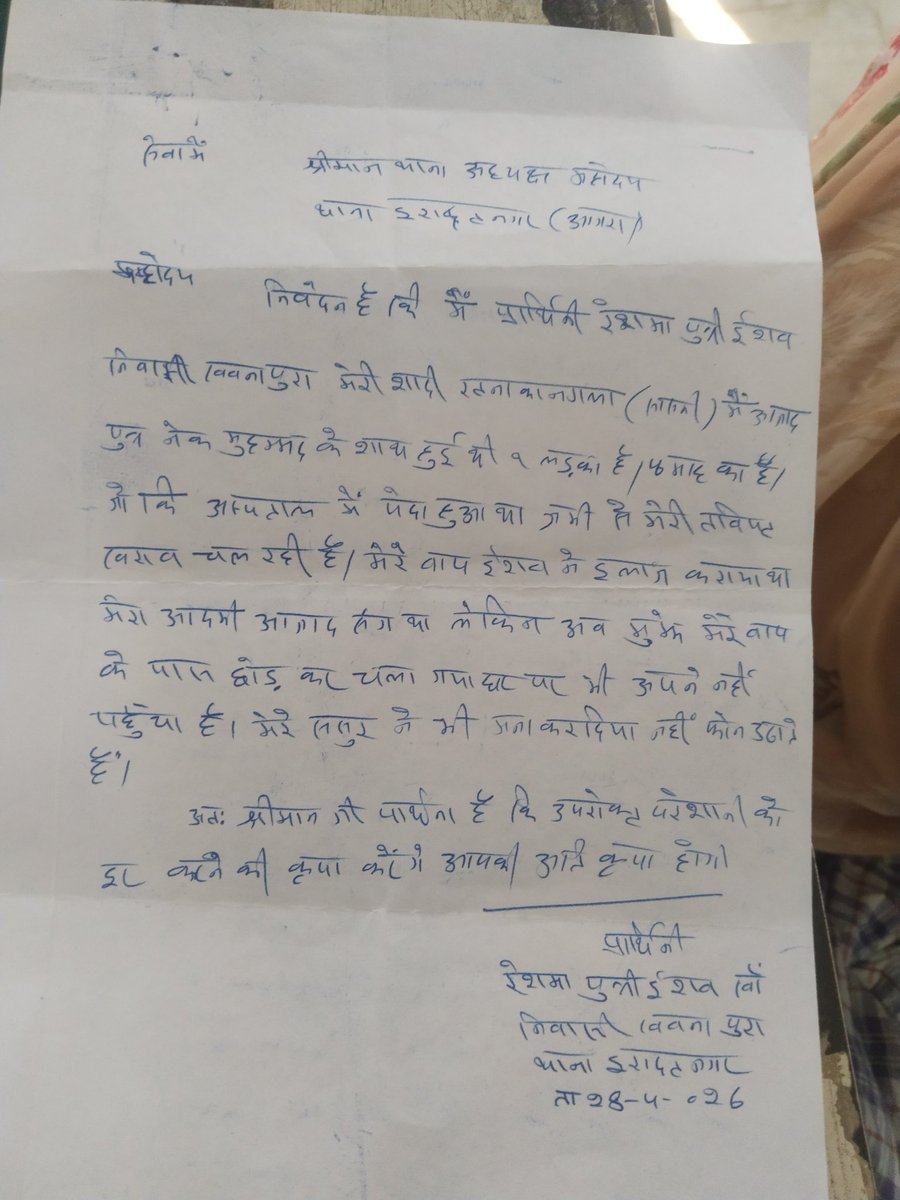 सेवा में
श्रीमान थाना अध्यक्ष महोदय
थाना इरादतनगर (आगरा)
महोदय
निवेदन है कि मैं प्रार्थिनी रेशमा पुत्री ईशव
निवासी खवनापुरा मेरी शादी रटनाकानगला में आजाद
पुत्र नेक मुहम्मद के शाथ हुई थी १ लड़का है। माह का है।
जो कि अस्पताल में पेदा हुआ था जभी से मेरी तवियट
खराव चल रही है। मेरे वाप ईशव ने इलाज कराया था
मेरा आदमी आजाद संग था लेकिन अव मुझे मेरे वाप
के पास छोड़ कर चला गया घर पर भी अपने नहीं
पहुँचा है। मेरे ससुर ने भी मना करदिया नहीं फोन उठाते
हैं।
अतः श्रीमान जी पार्थना है कि उपरोक्ट परेशानी को
दूर करने की कृपा करेंगे आपकी अति कृपा होगी
प्रार्थिनी
रेशमा पुत्री ईशव खाँ
निवासी खवनापुरा
थाना इरादतनगर
ता २8-५-०२6